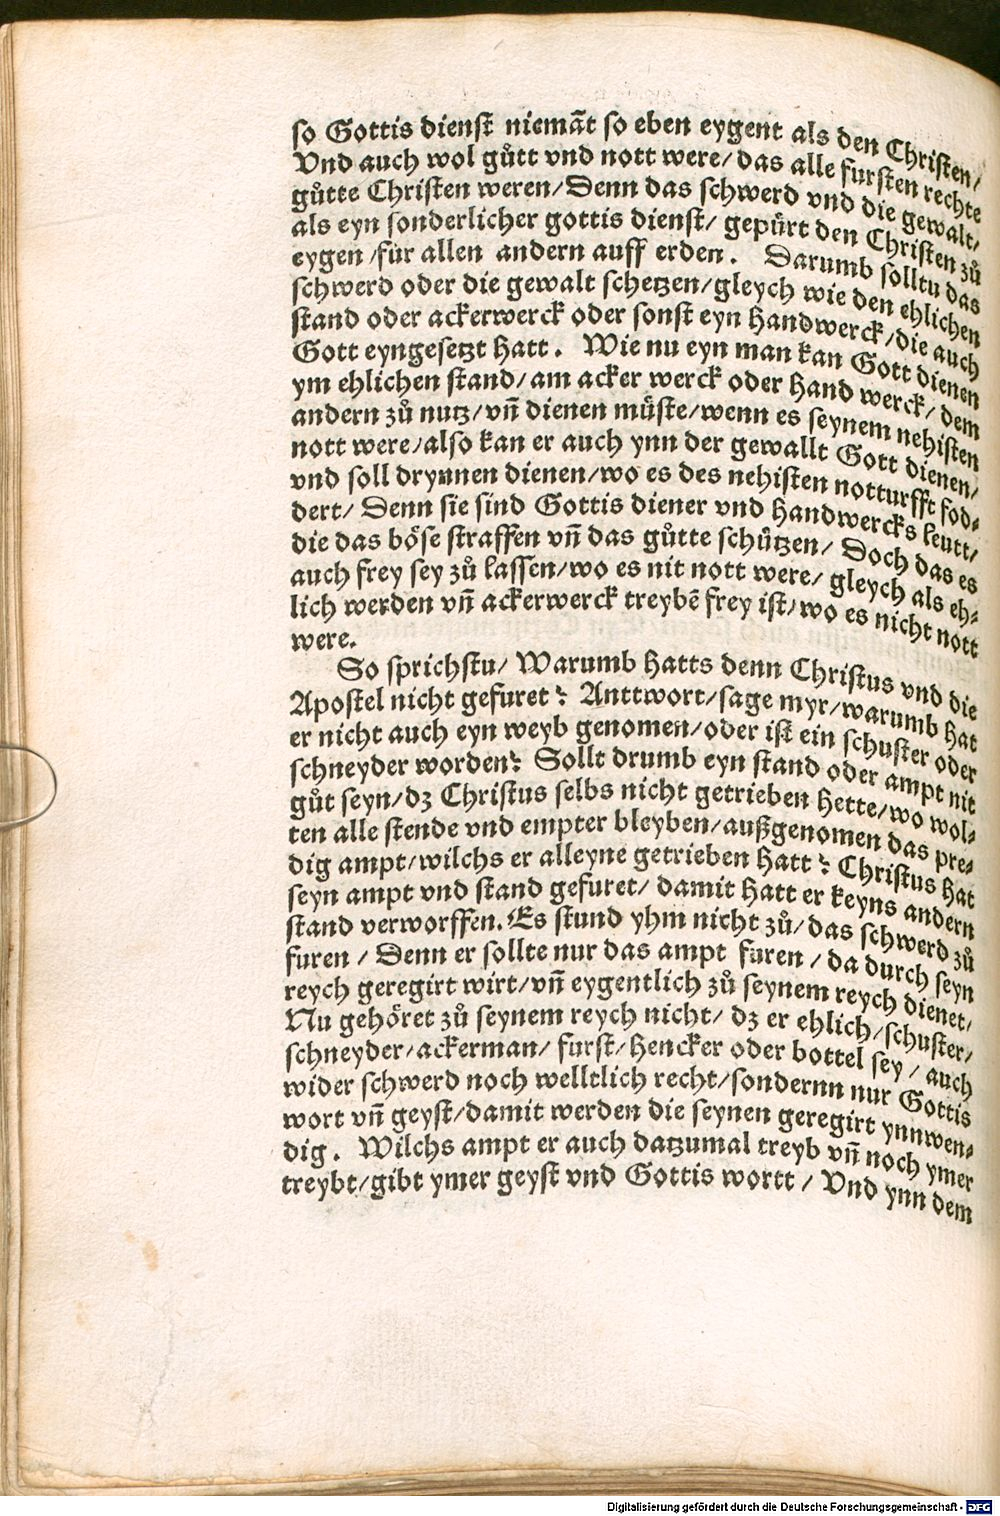 so Gottis dienst niemãt so eben eygent als den Christen/
Vnd auch wol gůtt vnd nott were/ das alle fursten rechte
gůtte Christen weren/ Denn das schwerd vnd die gewalt/
als eyn sonderlicher gottis dienst/ gepürt den Christen zů
eygen /für allen andern auff erden. Darumb solltu das
schwerd oder die gewalt schetzen/gleych wie den ehlichen
stand oder ackerwerck oder sonst eyn handwerck/die auch
Gott eyngesetzt hatt. Wie nu eyn man kan Gott dienen
ym ehlichen stand/am acker werck oder hand werck/ dem
andern zů nutz/vñ dienen müste/wenn es seynem nehisten
nott were/also kan er auch ynn der gewallt Gott dienen/
vnd soll drynnen dienen/wo es des nehisten notturfft fod⸗
dert/ Denn sie sind Gottis diener vnd handwercks leutt/
die das böse straffen vñ das gůtte schützen/ Doch das es
auch frey sey zů lassen/wo es nit nott were/ gleych als eh⸗
lich werden vñ ackerwerck treybẽ frey ist/wo es nicht nott
were.
So sprichstu/ Warumb hatts denn Christus vnd die
Apostel nicht gefuret? Anttwort/sage myr/warumb hat
er nicht auch eyn weyb genomen/oder ist ein schuster oder
schneyder worden? Sollt drumb eyn stand oder ampt nit
gůt seyn/dz Christus selbs nicht getrieben hette/wo wol⸗
ten alle stende vnd empter bleyben/außgenomen das pre⸗
dig ampt/wilchs er alleyne getrieben hatt? Christus hat
seyn ampt vnd stand gefuret/ damit hatt er keyns andern
stand verworffen. Es stund yhm nicht zů/das schwerd zů
furen / Denn er sollte nur das ampt furen /da durch seyn
reych geregirt wirt/vñ eygentlich zů seynem reych dienet/
Nu gehöret zů seynem reych nicht/ dz er ehlich/schuster/
schneyder/ackerman/ furst/hencker oder bottel sey / auch
wider schwerd noch welltlich recht/sondernn nur Gottis
wort vñ geyst/damit werden die seynen geregirt ynnwen⸗
dig. Wilchs ampt er auch datzumal treyb vñ noch ymer
treybt/gibt ymer geyst vnd Gottis wortt / Vnd ynn dem
Digitalisierung gefördert durch die Deutsche Forschungsgemeinschaft - DFG